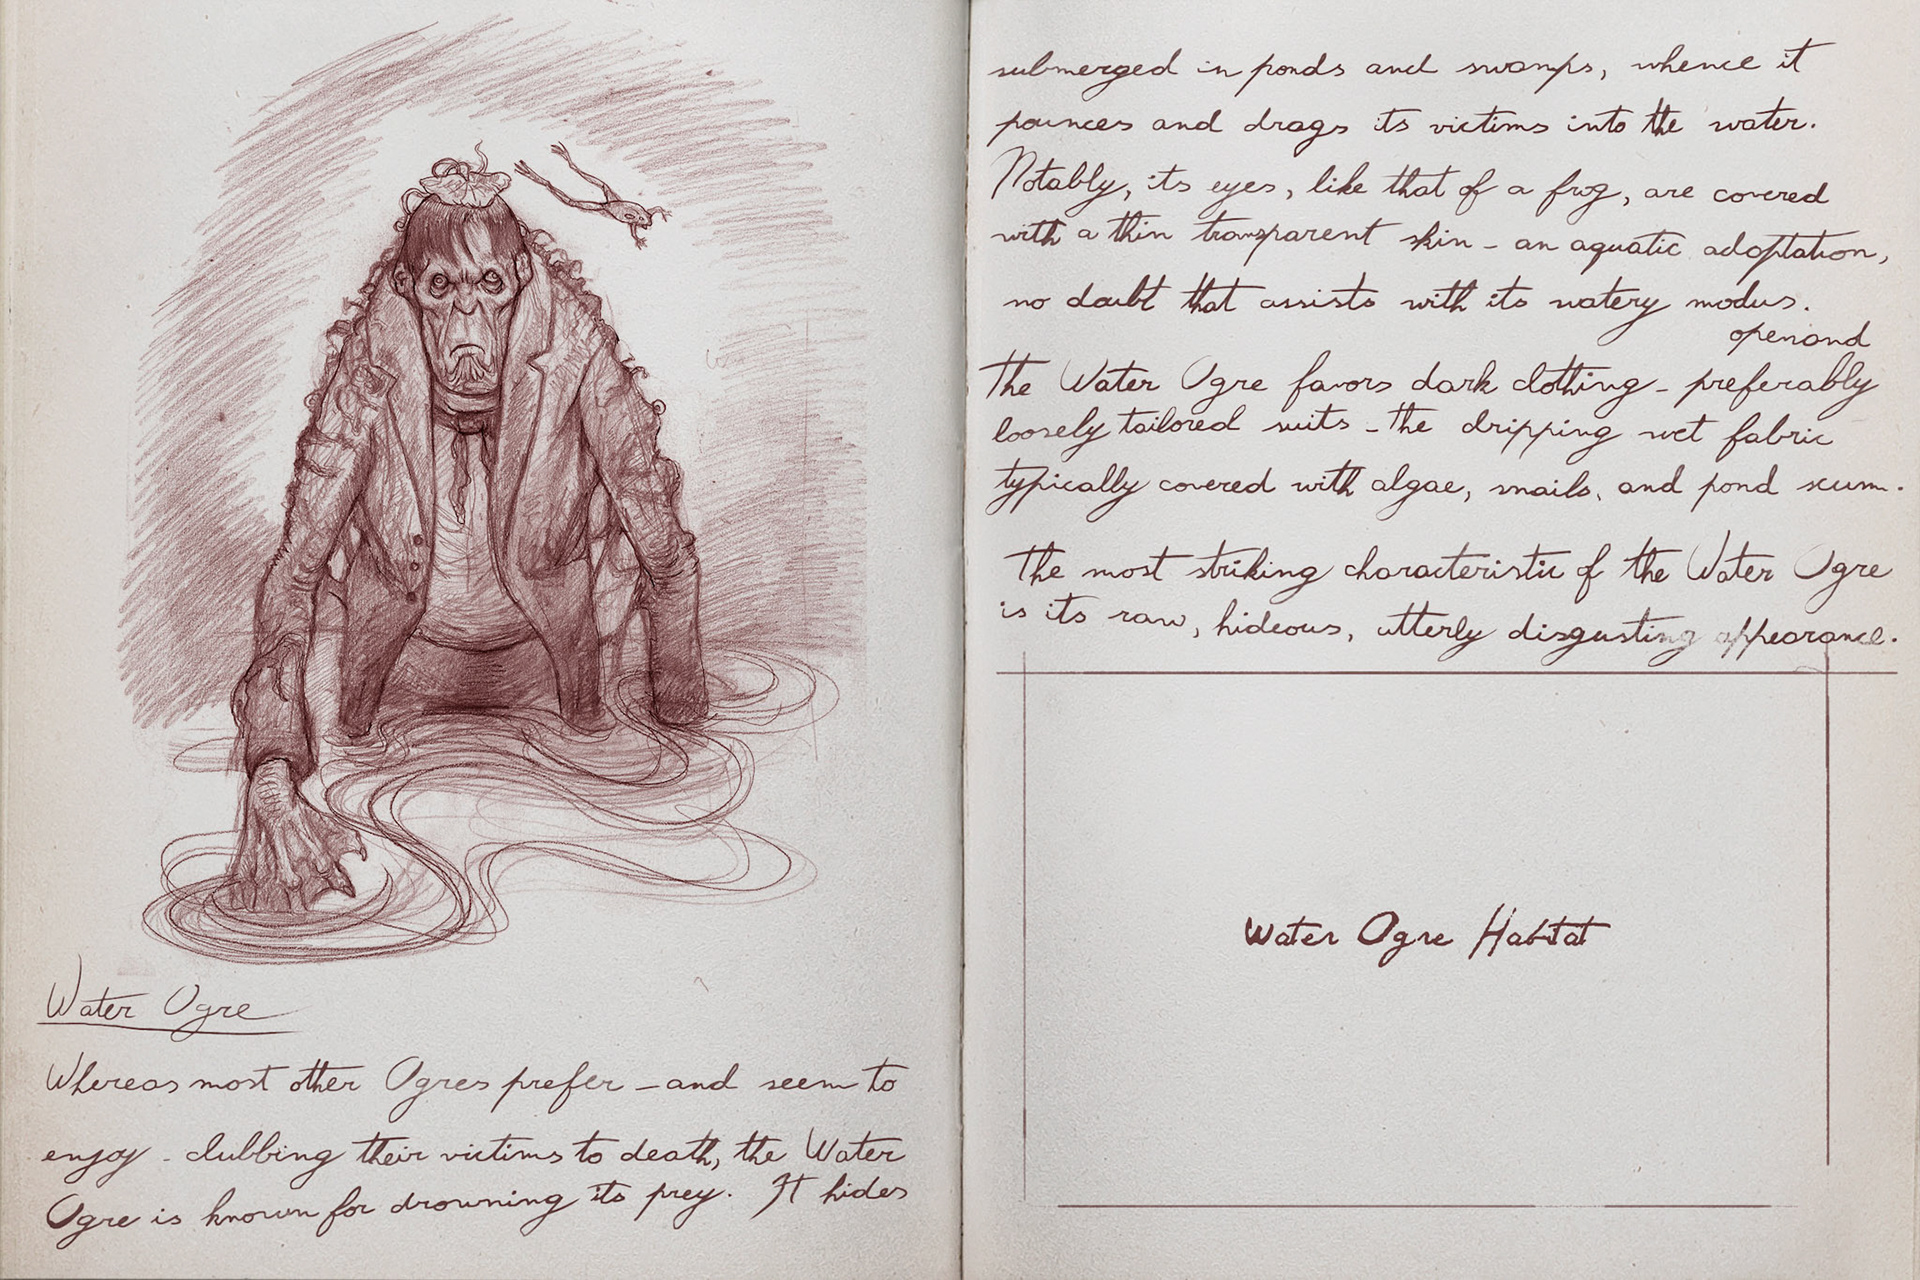 Water Ogre
Whereas most other Ogres prefer - and seem to
enjoy - clubbing their victims to death, the Water
Ogre is known for drowning its prey. It hides
submerged in ponds and swamps, whence it
pounces and drags its victims into the water.
Notably, its eyes, like that of a frog, are covered
with a thin transparent skin - an aquatic adaptation,
no doubt that assists with its watery modus.
operand
The Water Ogre favors dark clothing - preferably
loosely tailored suits - the dripping wet fabric
typically covered with algae, snails, and pond scum.
The most striking characteristic of the Water Ogre
is its raw, hideous, utterly disgusting appearance.
Water Ogre Habitat